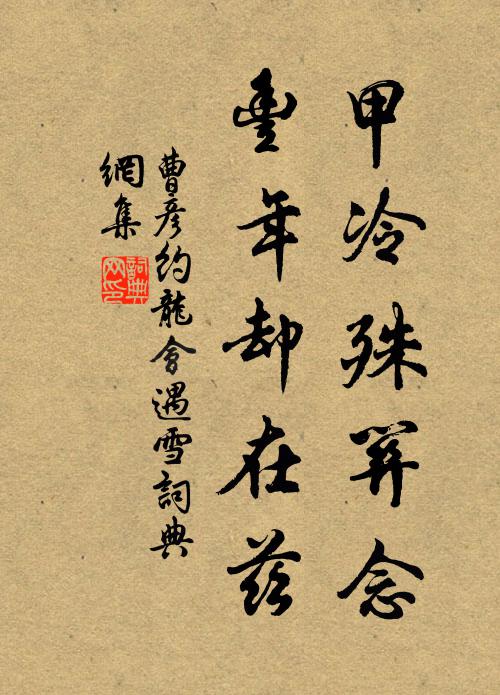 甲冷殊罪念
豐年却在茲
曹彥約龍會遇雪詞典
網集
詞典網印